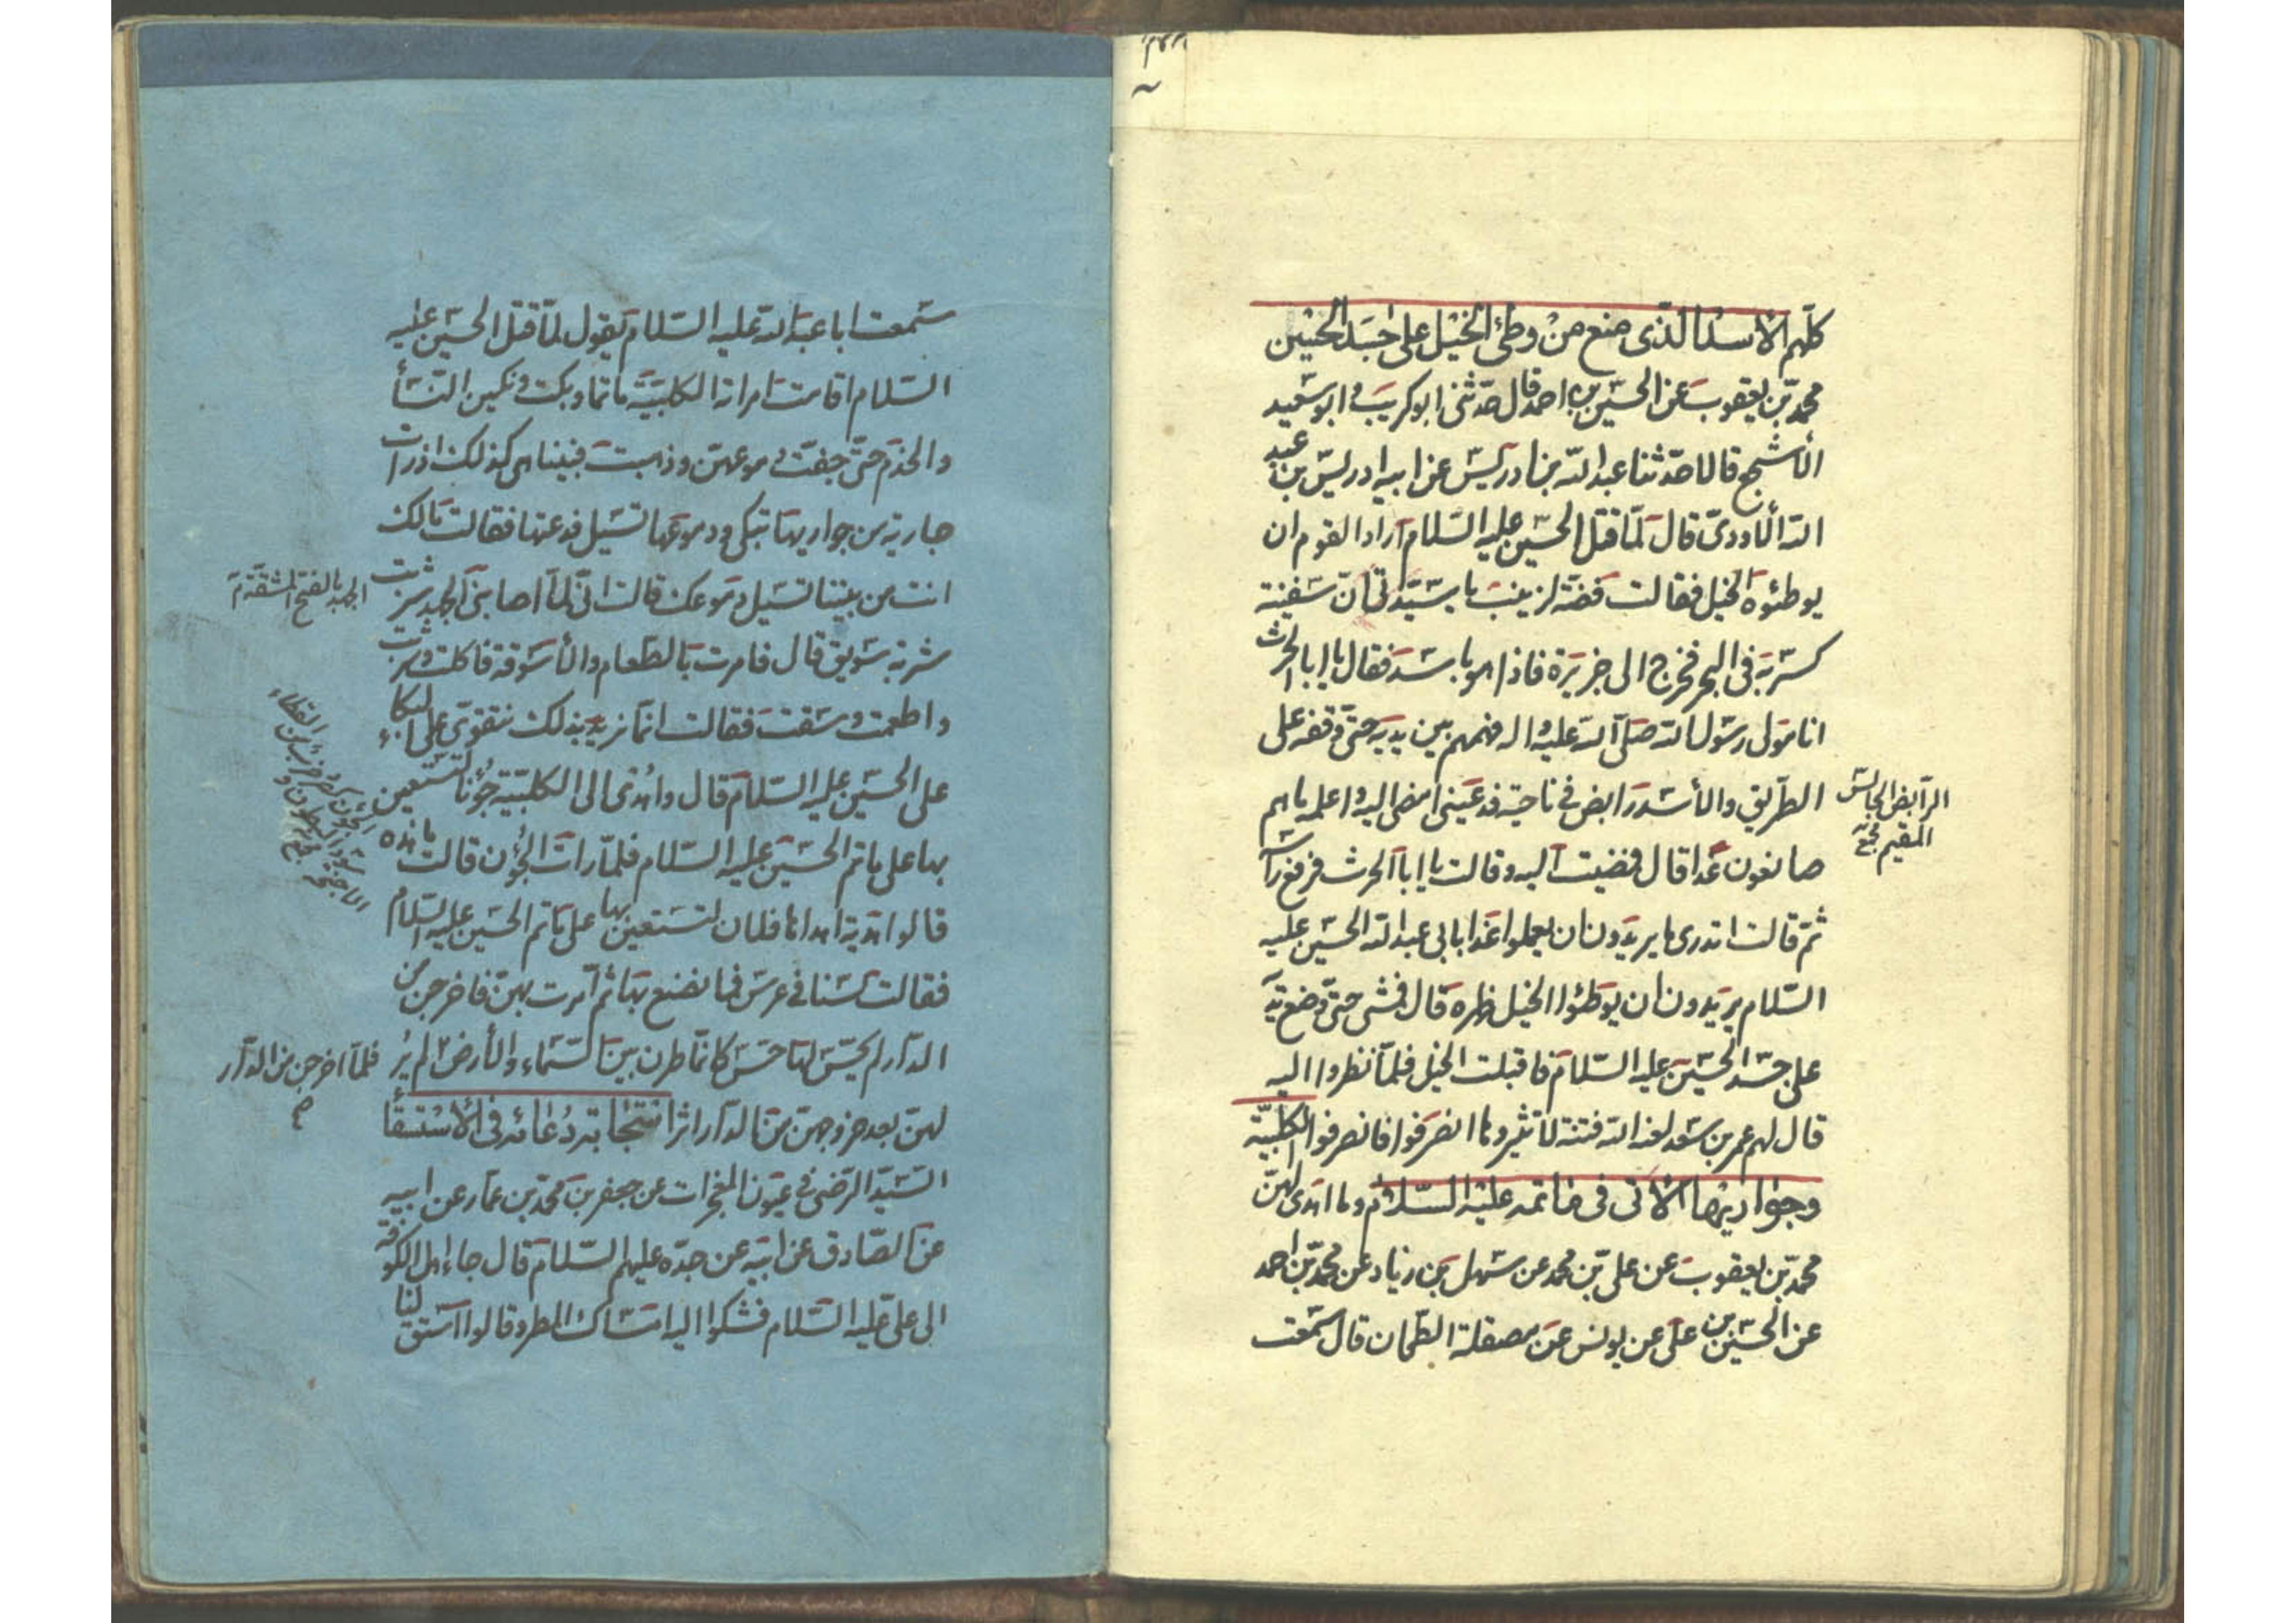 كلّهم الاسد الذى صنع من وطئ الخيل على جسد الحسين
محمّد بن يعقوب عن الحسين بن احمد قال حدّثنى ابو كريب و ابو سعيد
الأشج قالا حدّثنا عبد الله بن ادريس عن ابيه ادريس بن عبد
الله الأودىّ قال لمّا قتل الحسين عليه السّلام اراد القوم ان
يوطئوه الخيل فقالت فضّة لزينب يا سيّدتى انّ سفينة
كسر به فى البحر فخرج الى جزيرة فاذا هو باسد فقال يا ابا الحرث
انا مولى رسول الله صلّى الله عليه و اله فهمهم بين يديه حتّى وقفه على
الطّريق والأسد رابض فى ناحية فدعينى امضى اليه و اعلمه ما هم
صانعون غدا قال فمضيت اليه و قالت يا ابا الحرث فرفع رأسه
ثمّ قالت اتدرى ما يريدون ان يعملوا غدا بابى عبد الله الحسين عليه
السّلام يريدون ان يوطئوا الخيل ظهره قال فمشى حتّى وضع يديه
على جسد الحسين عليه السّلام فاقبلت الخيل فلمّا نظروا اليه
قال لهم عمر بن سعد لعنه الله فتنة لا تثيروها انصرفوا فانصرفوا الكلبيّة
وجواريها الاتى فى ماتمه عليه السّلام وما اهدى لهنّ
محمّد بن يعقوب عن علىّ بن محمد عن سهل بن زياد عن محمّد بن احمد
عن الحسين بن علىّ عن يونس عن مصقلة الطّحان قال سمعت
الرّابض الجالس
المقيم مجمع
سمعت ابا عبد الله عليه السّلام يقول لمّا قتل الحسين عليه
السّلام اقامت امراته الكلبيّة ماتما و بكت و بكين النّسأ
والخدم حتّى جفّت دموعهنّ و ذهبت فبينا هى كذلك اذ رات
جارية من جواريها تبكى و دموعها تسيل فدعتها فقالت مالك
انت من بيننا تسيل دموعك قالت انّى لمّا اصابنى الجهد شربت
شربة سويق قال فامرت بالطّعام والأسوقة فاكلت و شربت
و اطعمت و سقت فقالت انّما نريد بذلك نتقوّى على البكاء
على الحسين عليه السّلام قال و اهدى الى الكلبيّة جُوَنا لتستعين
بها على ماتم الحسين عليه السّلام فلمّا رات الجُوَن قالت ما هذه
قالوا هديّة اهداها فلان لتستعين بها على ماتم الحسين عليه السّلام
فقالت لسنا فى عرس فما نصنع بها ثمّ امرت بهنّ فاخرجن من
الدّار لم يحسّ لها حسّ كانّما طرن بين السّماء والأرض لم يُر
لهنّ بعد خروجهنّ من الدّار اثر استجابة دعائه فى الاستسقأ
السّيد الرّضى فى عيون المعجزات عن جعفر بن محمّد بن عمار عن ابيه
عن الصّادق عن ابيه عن جدّه عليهم السّلام قال جاء اهل الكوفة
الى علىّ عليه السّلام فشكوا اليه امساك المطر و قالوا استسق لنا
الجهد بالفتح المشقّة م
فلمّا اخرجن من الدّار